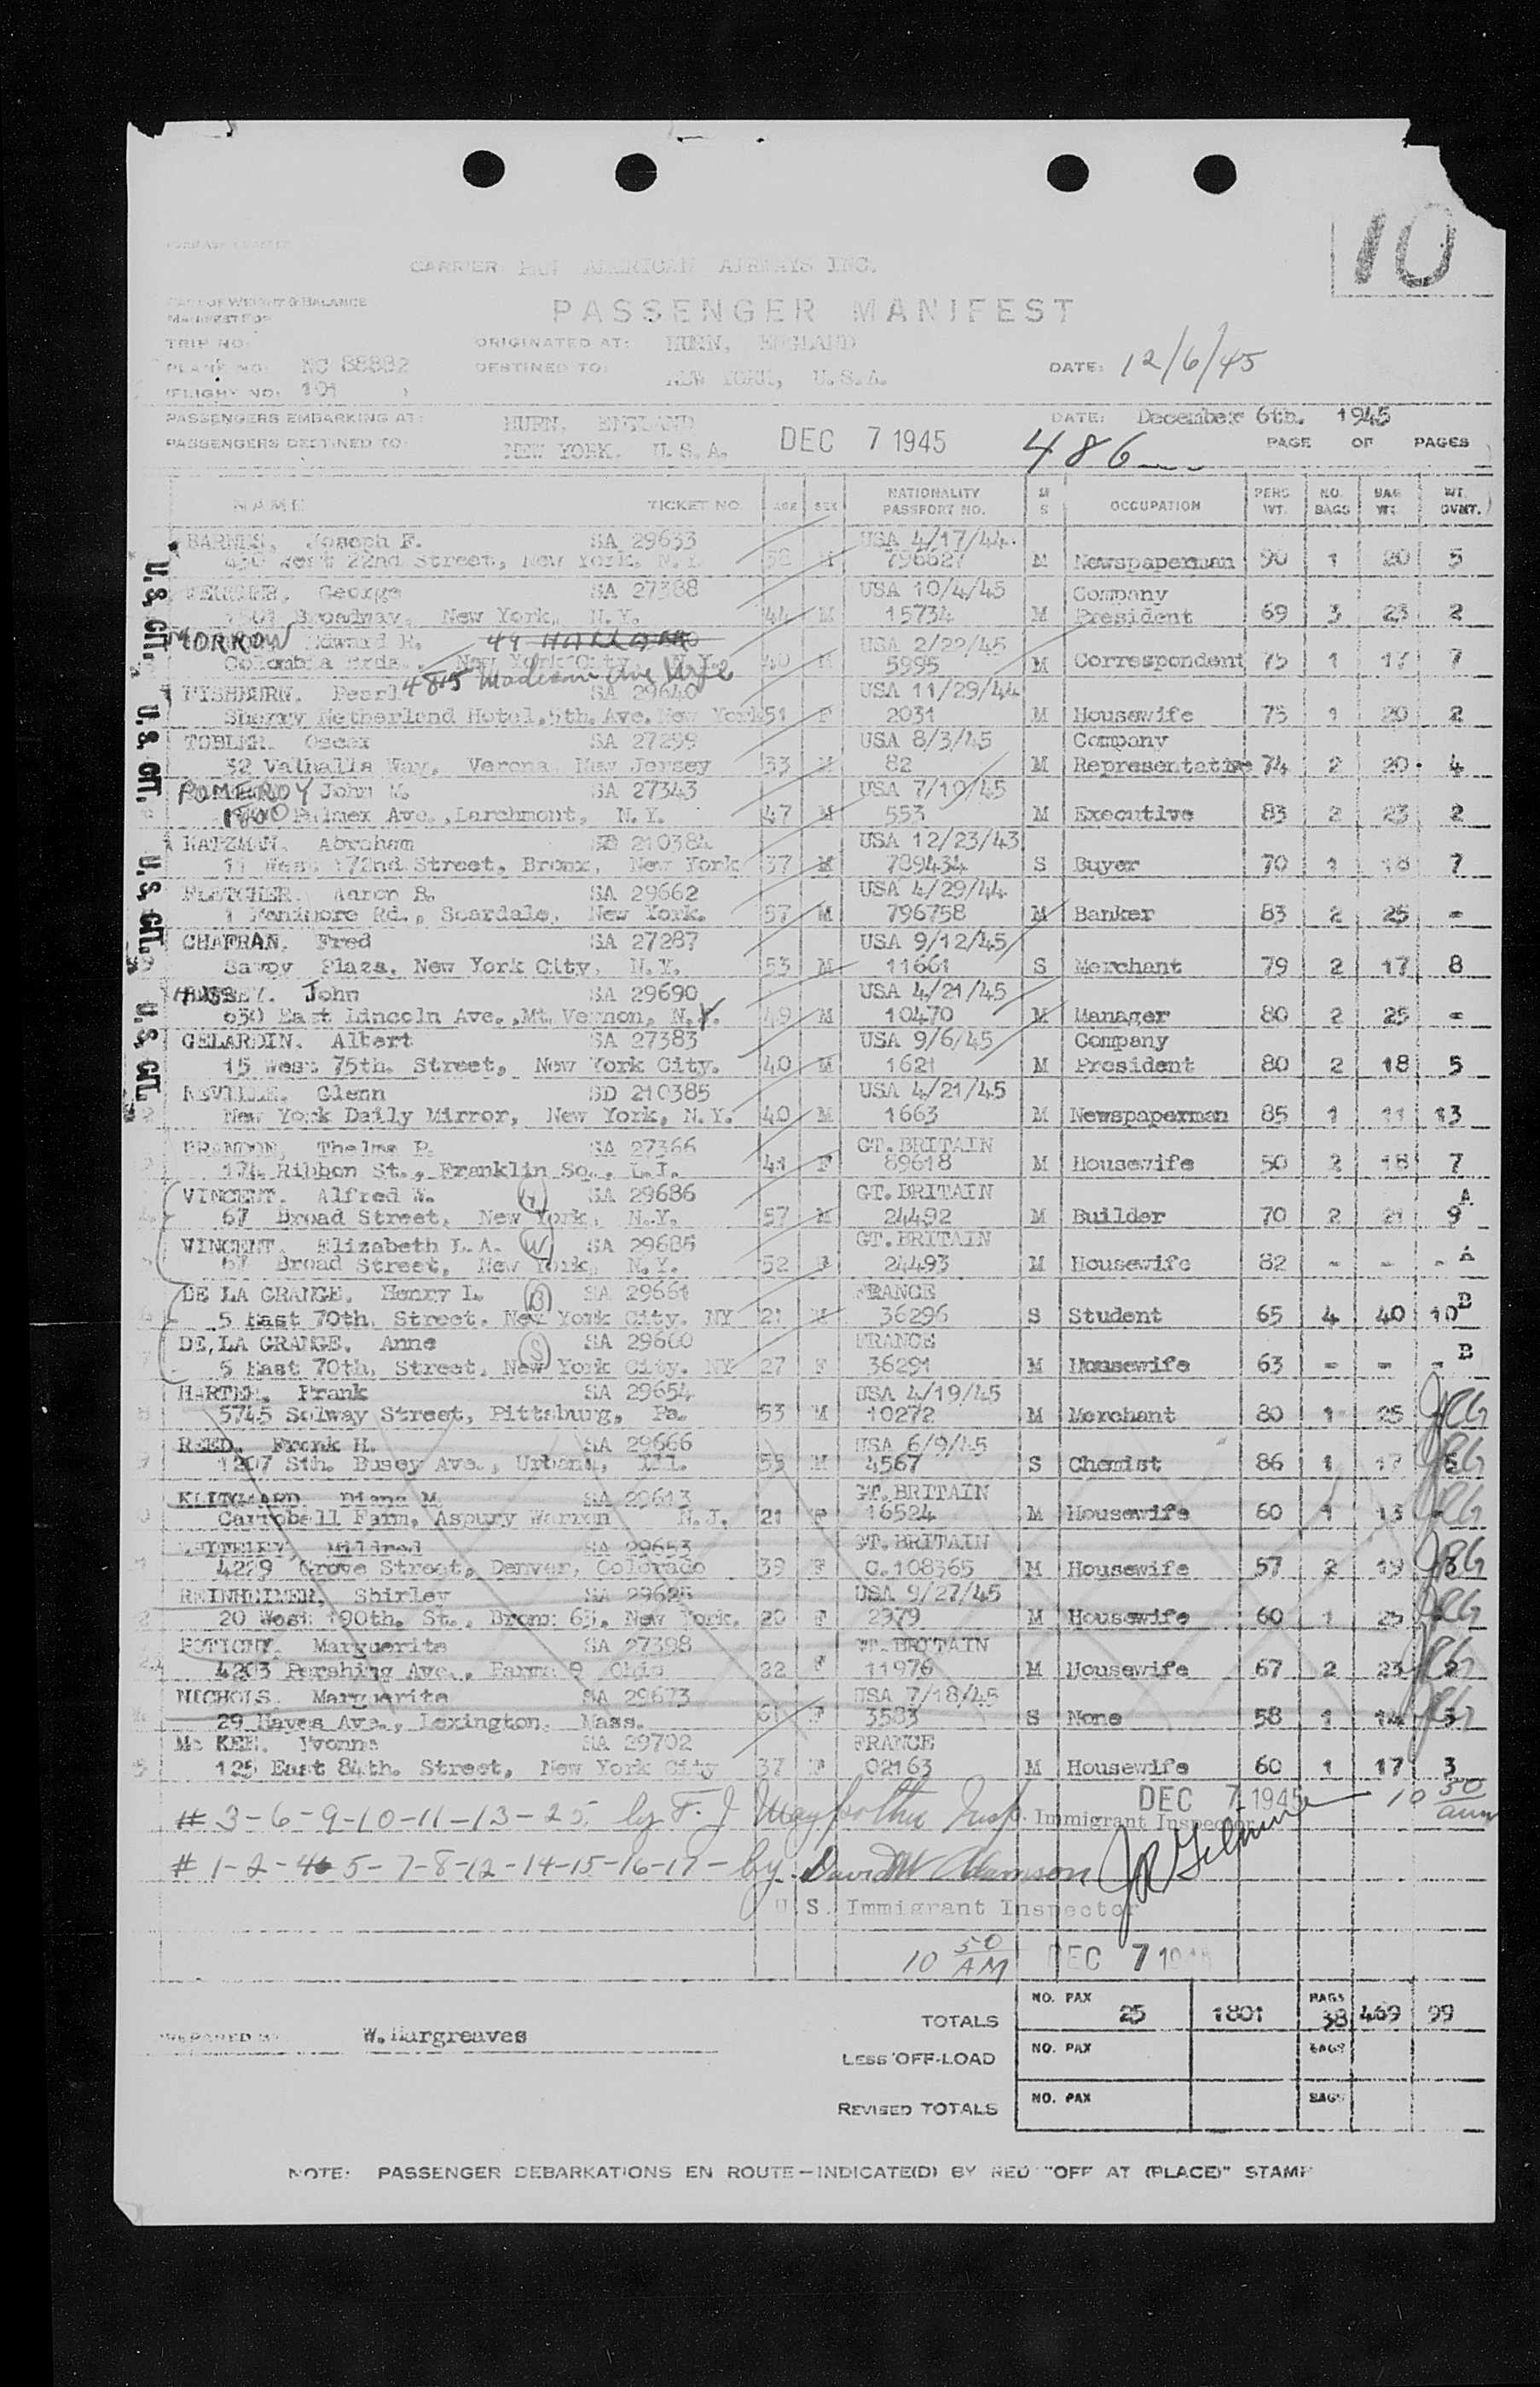 10
CARRIER PAN AMERICAN AIRWAYS INC.
PART OF WEIGHT & BALANCE
MANIFEST FOR
PASSENGER MANIFEST
TRIP NO: ORIGINATED AT: HURN, ENGLAND
PLANE NO: NC 88882 DESTINED TO: NEW YORK, U.S.A. DATE: 12/6/45
(FLIGHT NO: 101 )
PASSENGERS EMBARKING AT: HURN. ENGLAND DATE: December 6th. 1945
PASSENGERS DESTINED TO: NEW YORK. U.S.A. DEC 7 1945 486 PAGE OF PAGES
NAME TICKET NO. AGE SEX NATIONALITY PASSPORT NO. M S OCCUPATION PERS. WT. NO. BAGS BAG WT. WT. OVWT.
BARNES, Joseph F. SA 29633 USA 4/17/44.
430 West 22nd Street, New York, N.Y. 38 M 796627 M Newspaperman 90 1 20 5
George SA 27388 USA 10/4/45 Company
Broadway, New York, N.Y. 44 M 15734 M President 69 3 23 2
MORROW Edward R. USA 2/22/45
Columbia Brds., New York City, N.Y. 40 M 5995 M Correspondent 75 1 17 7
485 Madison Ave
FISHBURN. Pearl SA 29640 USA 11/29/44
Sherry Netherland Hotel, 5th. Ave. New York 51 F 2031 M Housewife 75 1 20 2
TOBLER. Oscar SA 27299 USA 8/3/45 Company
32 Valhalla Way, Verona, New Jersey 33 M 82 M Representative 74 2 20 4
POMEROY John W. SA 27343 USA 7/10/45
Palmer Ave., Larchmont, N.Y. 47 M 553 M Executive 83 2 23 2
KATZMAN. Abraham SD 210384 USA 12/23/43
11 West 172nd Street, Bronx, New York 37 M 789434 S Buyer 70 1 18 7
FLETCHER. Aaron B. SA 29662 USA 4/29/44
1 Fenimore Rd., Scardale, New York. 57 M 796758 M Banker 83 2 25 -
CHAFRAN. Fred SA 27287 USA 9/12/45
Savoy Plaza, New York City, N.Y. 53 M 11661 S Merchant 79 2 17 8
HUSSEY. John SA 29690 USA 4/21/45
630 East Lincoln Ave., Mt. Vernon, N.Y. 49 M 10470 M Manager 80 2 25 -
GELARDIN. Albert SA 27383 USA 9/6/45 Company
15 West 75th. Street, New York City. 40 M 1621 M President 80 2 18 5
NEVILLE. Glenn SD 210385 USA 4/21/45
New York Daily Mirror, New York, N.Y. 40 M 1663 M Newspaperman 85 1 11 13
BRANDON, Thelma P. SA 27366 GT. BRITAIN
174 Ribbon St., Franklin Sq., L.I. 41 F 89618 M Housewife 50 2 18 7
VINCENT. Alfred W. SA 29686 GT. BRITAIN A
67 Broad Street, New York, N.Y. 57 M 24492 M Builder 70 2 21 9
VINCENT. Elizabeth L.A. W SA 29685 GT. BRITAIN
67 Broad Street, New York, N.Y. 52 F 24493 M Housewife 82 - - - A
DE LA GRANGE. Henry L. B SA 29661 FRANCE B
5 East 70th. Street. New York City. NY 21 M 36296 S Student 65 4 40 10
DE LA GRANGE. Anne S SA 29660 FRANCE B
5 East 70th. Street, New York City. NY 27 F 36291 M Housewife 63 - - -
HARTER. Frank SA 29654 USA 4/19/45
5745 Solway Street, Pittsburg, Pa. 53 M 10272 M Merchant 80 1 25 JRG
REED. Frank H. SA 29666 USA 6/9/45
1207 Sth. Busey Ave., Urbana, Ill. 55 M 4567 S Chemist 86 1 17 5 JRG
Diana M. SA 29613 GT. BRITAIN
Carrobell Farm, Asbury Warren N.J. 21 F 16524 M Housewife 60 1 13 JRG
WHITELEY, Mildred SA 29653 GT. BRITAIN
4229 Grove Street, Denver, Colorado 39 F C.108365 M Housewife 57 2 19 3 JRG
REINHEIMER. Shirley SA 29625 USA 9/27/45
20 West 190th. St., Bronx 63, New York. 20 F 2379 M Housewife 60 1 25 JRG
POTIGNY. Marguerite SA 27398 GT. BRITAIN
4203 Pershing Ave., Parma 9 Ohio 22 F 11976 M Housewife 67 2 23 2 JRG
NICHOLS. Marguerite SA 29673 USA 7/18/45
29 Hayes Ave., Lexington. Mass. 61 F 3583 S None 58 1 14 3 JRG
Mc KEE. Yvonne SA 29702 FRANCE
125 East 84th. Street, New York City 37 F 02163 M Housewife 60 1 17 3
U.S. CIT. U.S. CIT. U.S. CIT. U.S. CIT.
DEC 7 1945 10 50 am
# 3-6-9-10-11-13-25 by F. J. Insp. Immigrant Inspector
# 1-2-4-5-7-8-12-14-15-16-17- by David W Adamson
U.S. Immigrant Inspector
10 50 AM DEC 7 1945
TOTALS NO. PAX 25 1801 BAGS 38 469 99
PREPARED BY W. Hargreaves
LESS OFF-LOAD NO. PAX BAGS
REVISED TOTALS NO. PAX BAGS
NOTE: PASSENGER DEBARKATIONS EN ROUTE—INDICATE(D) BY RED "OFF AT (PLACE)" STAMP